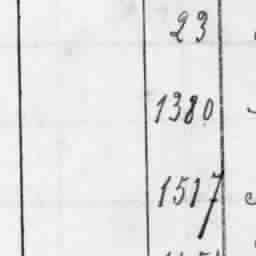 23
1380
1517